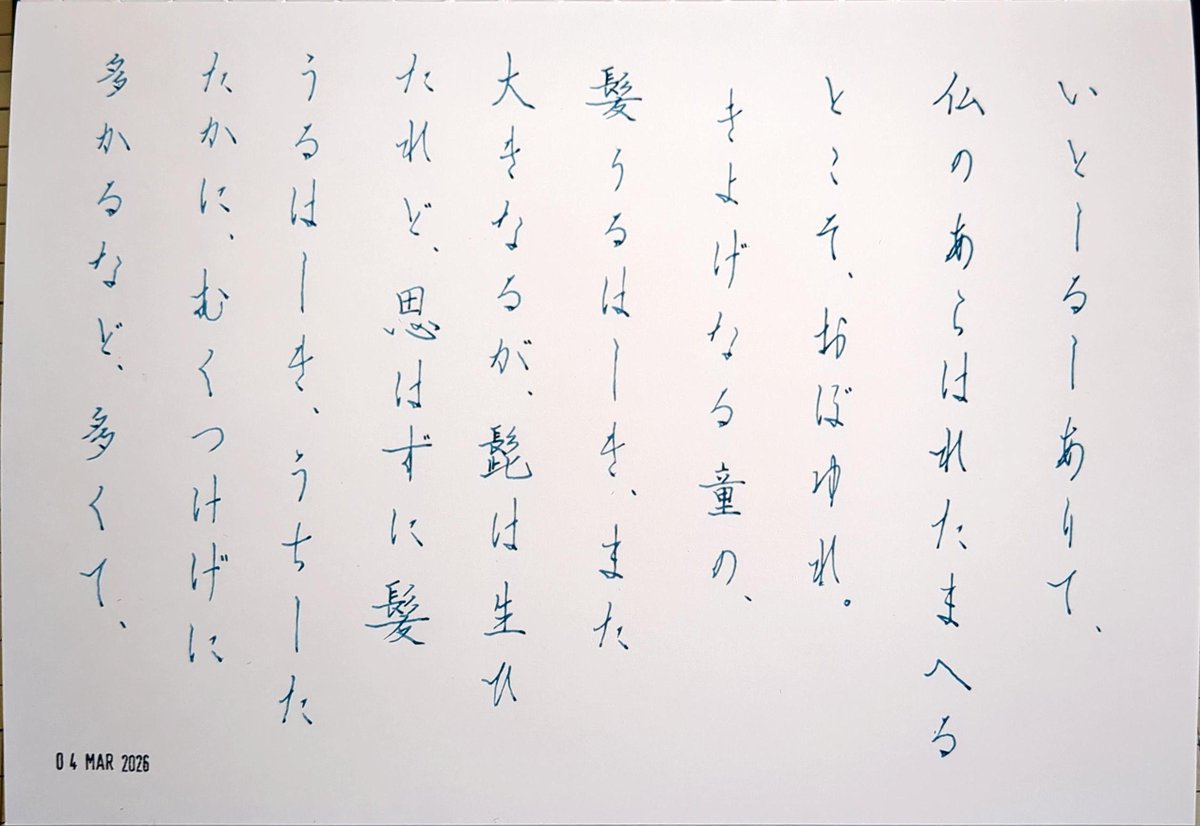 いとしるしありて、
仏のあらはれたまへる
とこそ、おぼゆれ。
きよげなる童の、
髪うるはしき、また
大きなるが、髭は生ひ
たれど、思はずに髪
うるはしき、うちした
たかに、むくつけげに
多かるなど、多くて、
04 MAR 2026